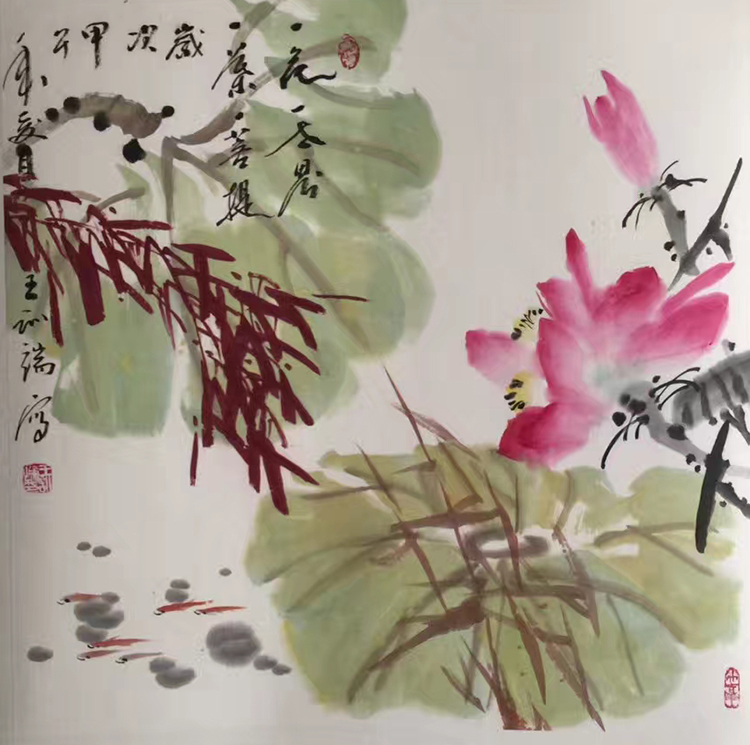 一花一世界
一葉一菩提
歲次甲午
年夏月王训瑞寫